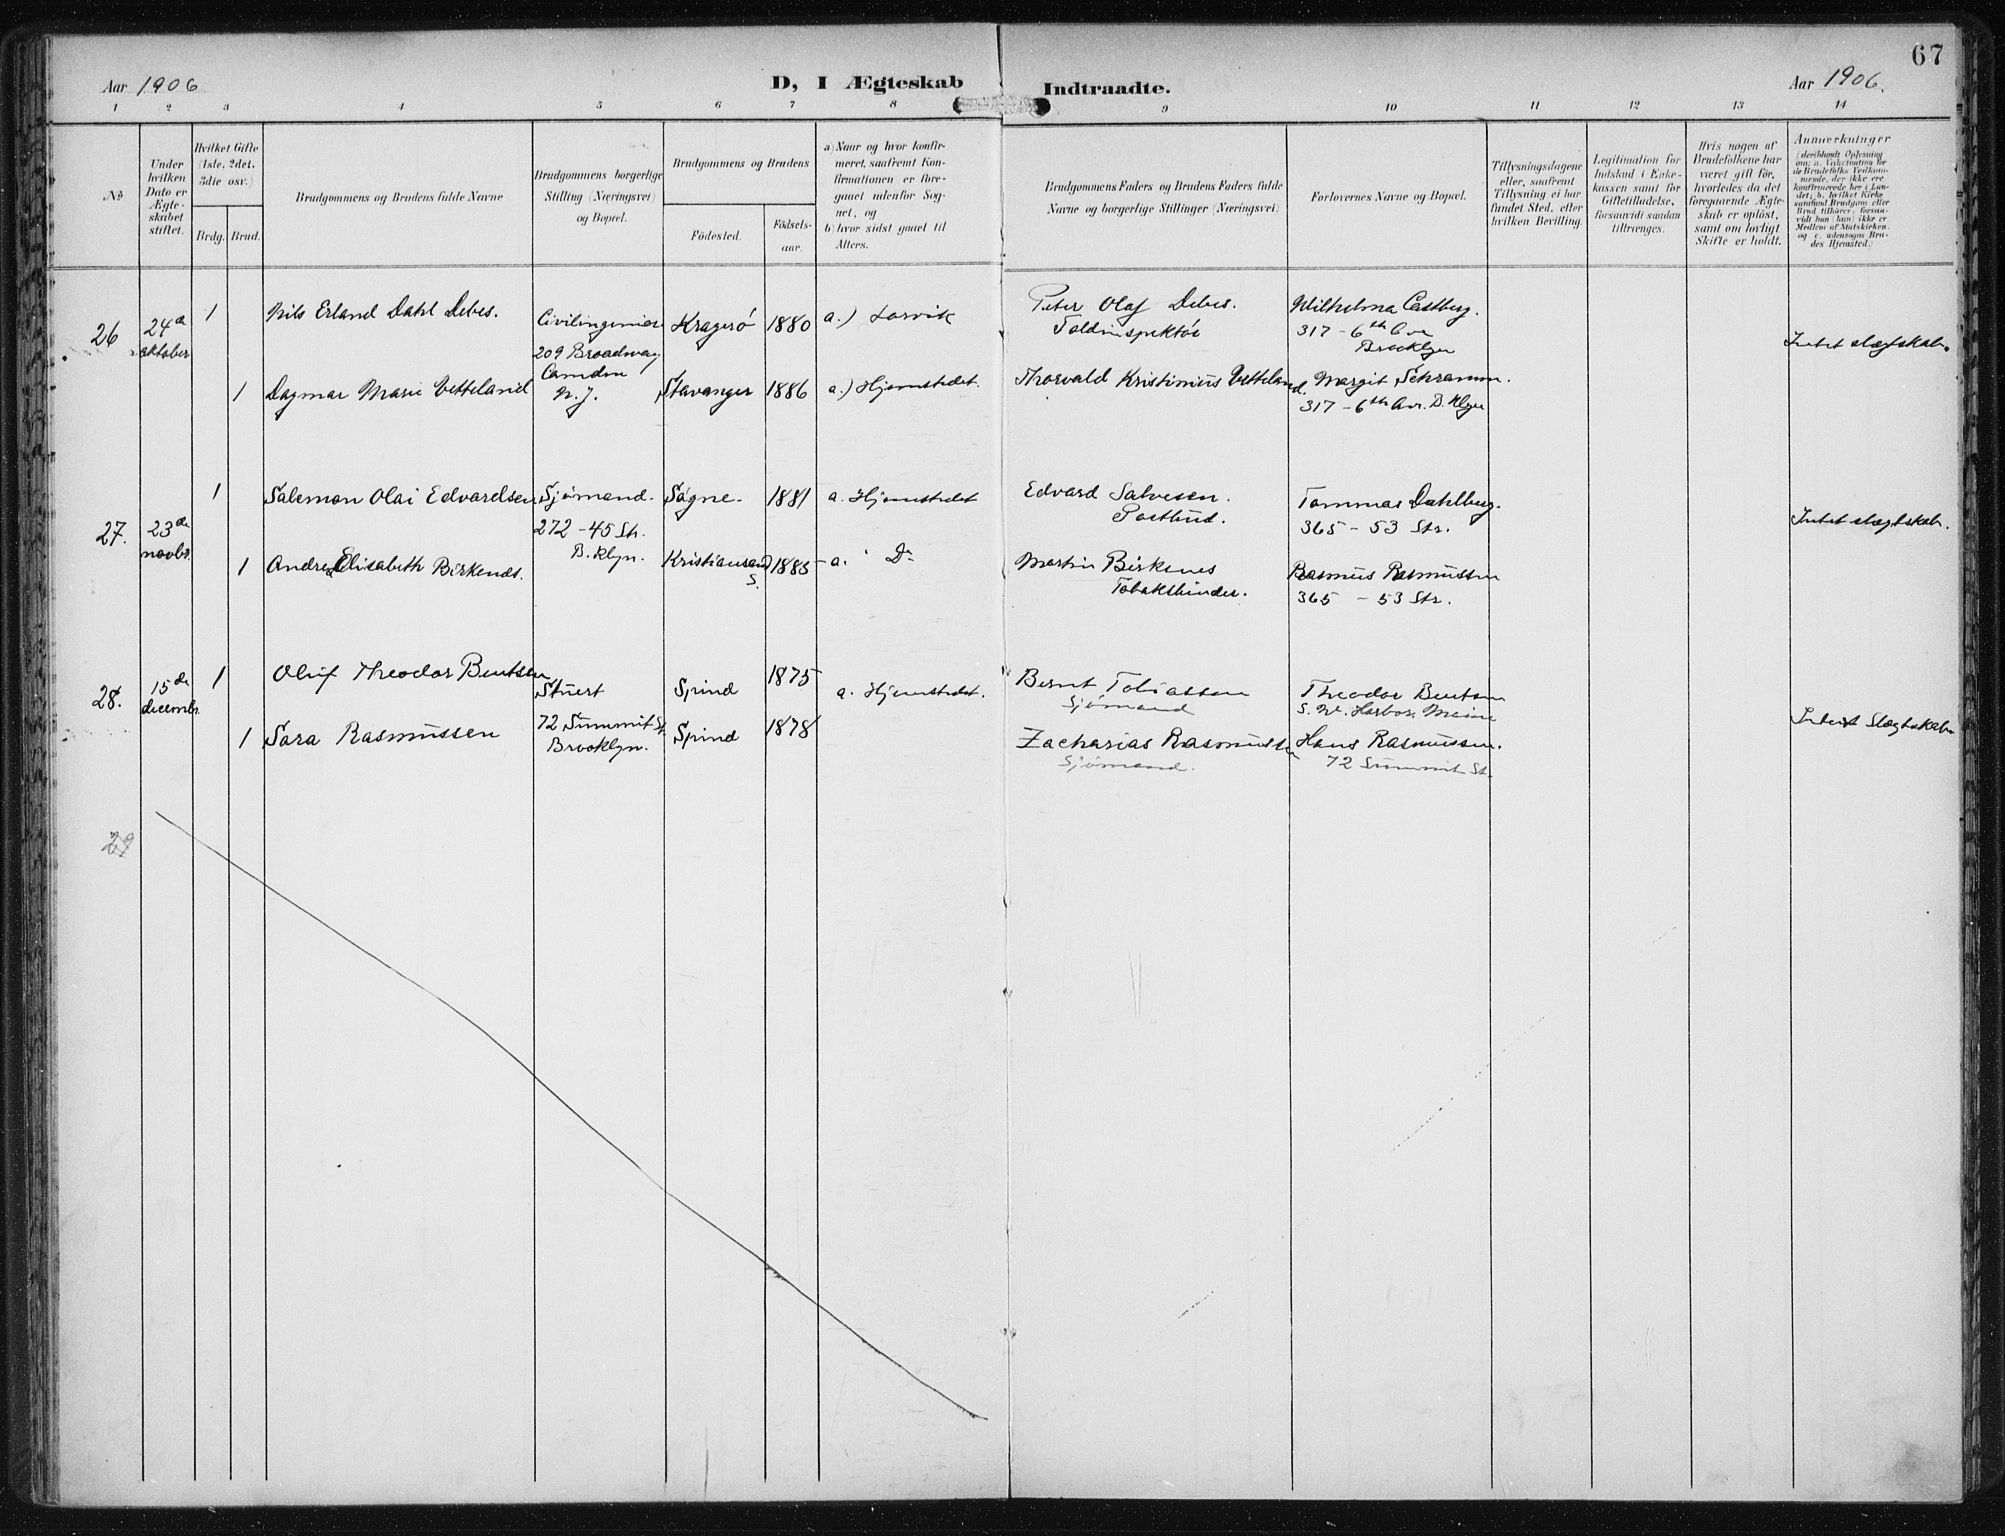 67
Aar 1906
D, I Ægteskab Indtraadte.
Aar 1906.
1 2 3 4 5 6 7 8 9 10 11 12 13 14
No
Under hvilken Dato er Ægte-skabet stiftet.
Hvilket Gifte (1ste, 2det, 3die osv.)
Brdg. Brud.
Brudgommens og Brudens fulde Navne
Brudgommens borgerlige Stilling (Næringsvei) og Bopæl.
Brudgommens og Brudens
Födested.
Födsels-aar.
a) Naar og hvor konfir-
meret, saafremt Kon-
firmationen er fore-
gaaet udenfor Sog-
net, og
b) hvor sidst gaaet til
Alters.
Brudgommens Faders og Brudens Faders fulde
Navne og borgerlige Stillinger (Næringsvei)
Forlovernes Navne og Bopæl.
Tillysningsdagene
eller, saafremt
Tillysning ei har
fundet Sted, efter
hvilken Bevilling.
Legitimation for
Indskud i Enke-
kassen samt for
Giftetilladelse,
forsaavidt saadan
tiltrænges.
Hvis nogen af
Brudefolkene har
været gift før,
hvorledes da det
foregaaende Ægte-
skab er oplöst,
samt om lovligt
Skifte er holdt.
Anmærkninger
(deriblandt Oplysning
om: a. Vakcination for
de Brudefolks Vedkom-
mende, der ikke ere
konfirmerede her i Lan-
det; b. hvilket Kirke
samfund Brudgom eller
Brud tilhører, forsaa-
vidt han (hun) ikke er
Medlem af Statskirken,
og c. udensogns Bru-
des Hjemsted.)
26
24de oktober
1
Nils Erland Dahl Debes.
Civilingeniør
209 Broadway
Camden
N. J.
Kragerö
1880
a.) Larvik
Peter Olaf Debes.
Toldinspektör
Wilhelma Castberg.
317 - 6th Ave
Brooklyn
Intet slægtskab.
1
Dagmar Marie Vetteland
Stavanger
1886
a.) Hjemstedet.
Thorvald Kristinius Vetteland.
Margit Schramm.
317 - 6th Av. B.klyn
27.
23de novbr.
1
Salemon Olai Edvardsen
Sjömand.
272 - 45 Str.
B.klyn.
Sögne.
1881
a. Hjemstedet
Edvard Salvesen.
Postbud.
Tommas Dahlberg.
365 - 53 Str.
Intet slægtskab.
1
Andrea Elisabeth Birkenæs.
Kristiansand S.
1885
a. Do
Martin Birkenes
Tobaksbinder.
Rasmus Rasmussen
365 - 53 Str.
28.
15de decembr.
1
Oluf Theodor Bentsen
Stuert
72 Summit St.
Brooklyn.
Spind
1875
a. Hjemstedet.
Bernt Tobiassen
Sjömand
Theodor Bentsen
S. W. Harbor, Maine
Intet Slægtskab
1
Sara Rasmussen
Spind
1878
Zacharias Rasmussen
Sjömand.
Hans Rasmussen.
72 Summit St.
29